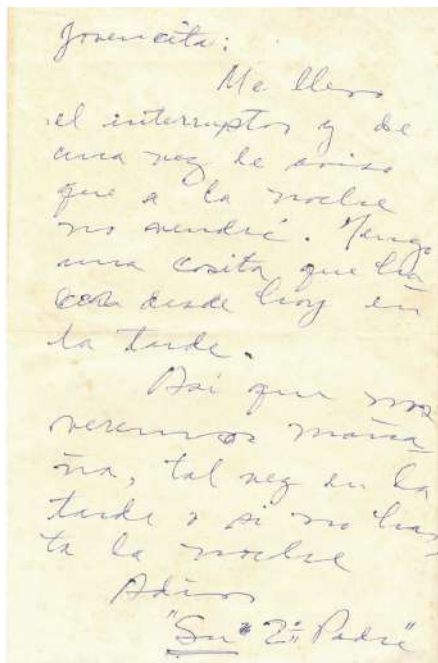 Jovencita:
Me llevo
el interruptor y de
una vez le aviso
que a la noche
no vendré. Tengo
una cosita que ha-
cer desde hoy en
la tarde.
Asi que nos
veremos maña-
na, tal vez en la
tarde o si no has
ta la noche
Adios
"Su 2º Padre"